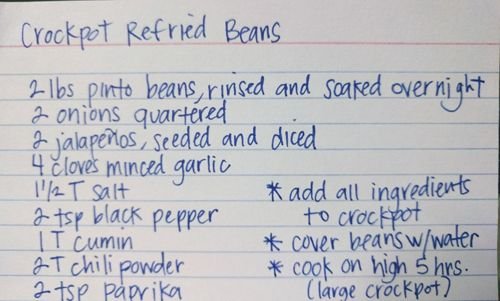 Crockpot Refried Beans
2 lbs pinto beans, rinsed and soaked overnight
2 onions quartered
2 jalapeños, seeded and diced
4 cloves minced garlic
1 1/2 T salt
2 tsp black pepper
1 T cumin
2 T chili powder
2 tsp paprika
* add all ingredients
to crockpot
* cover beans w/water
* cook on high 5 hrs.
(large crockpot)